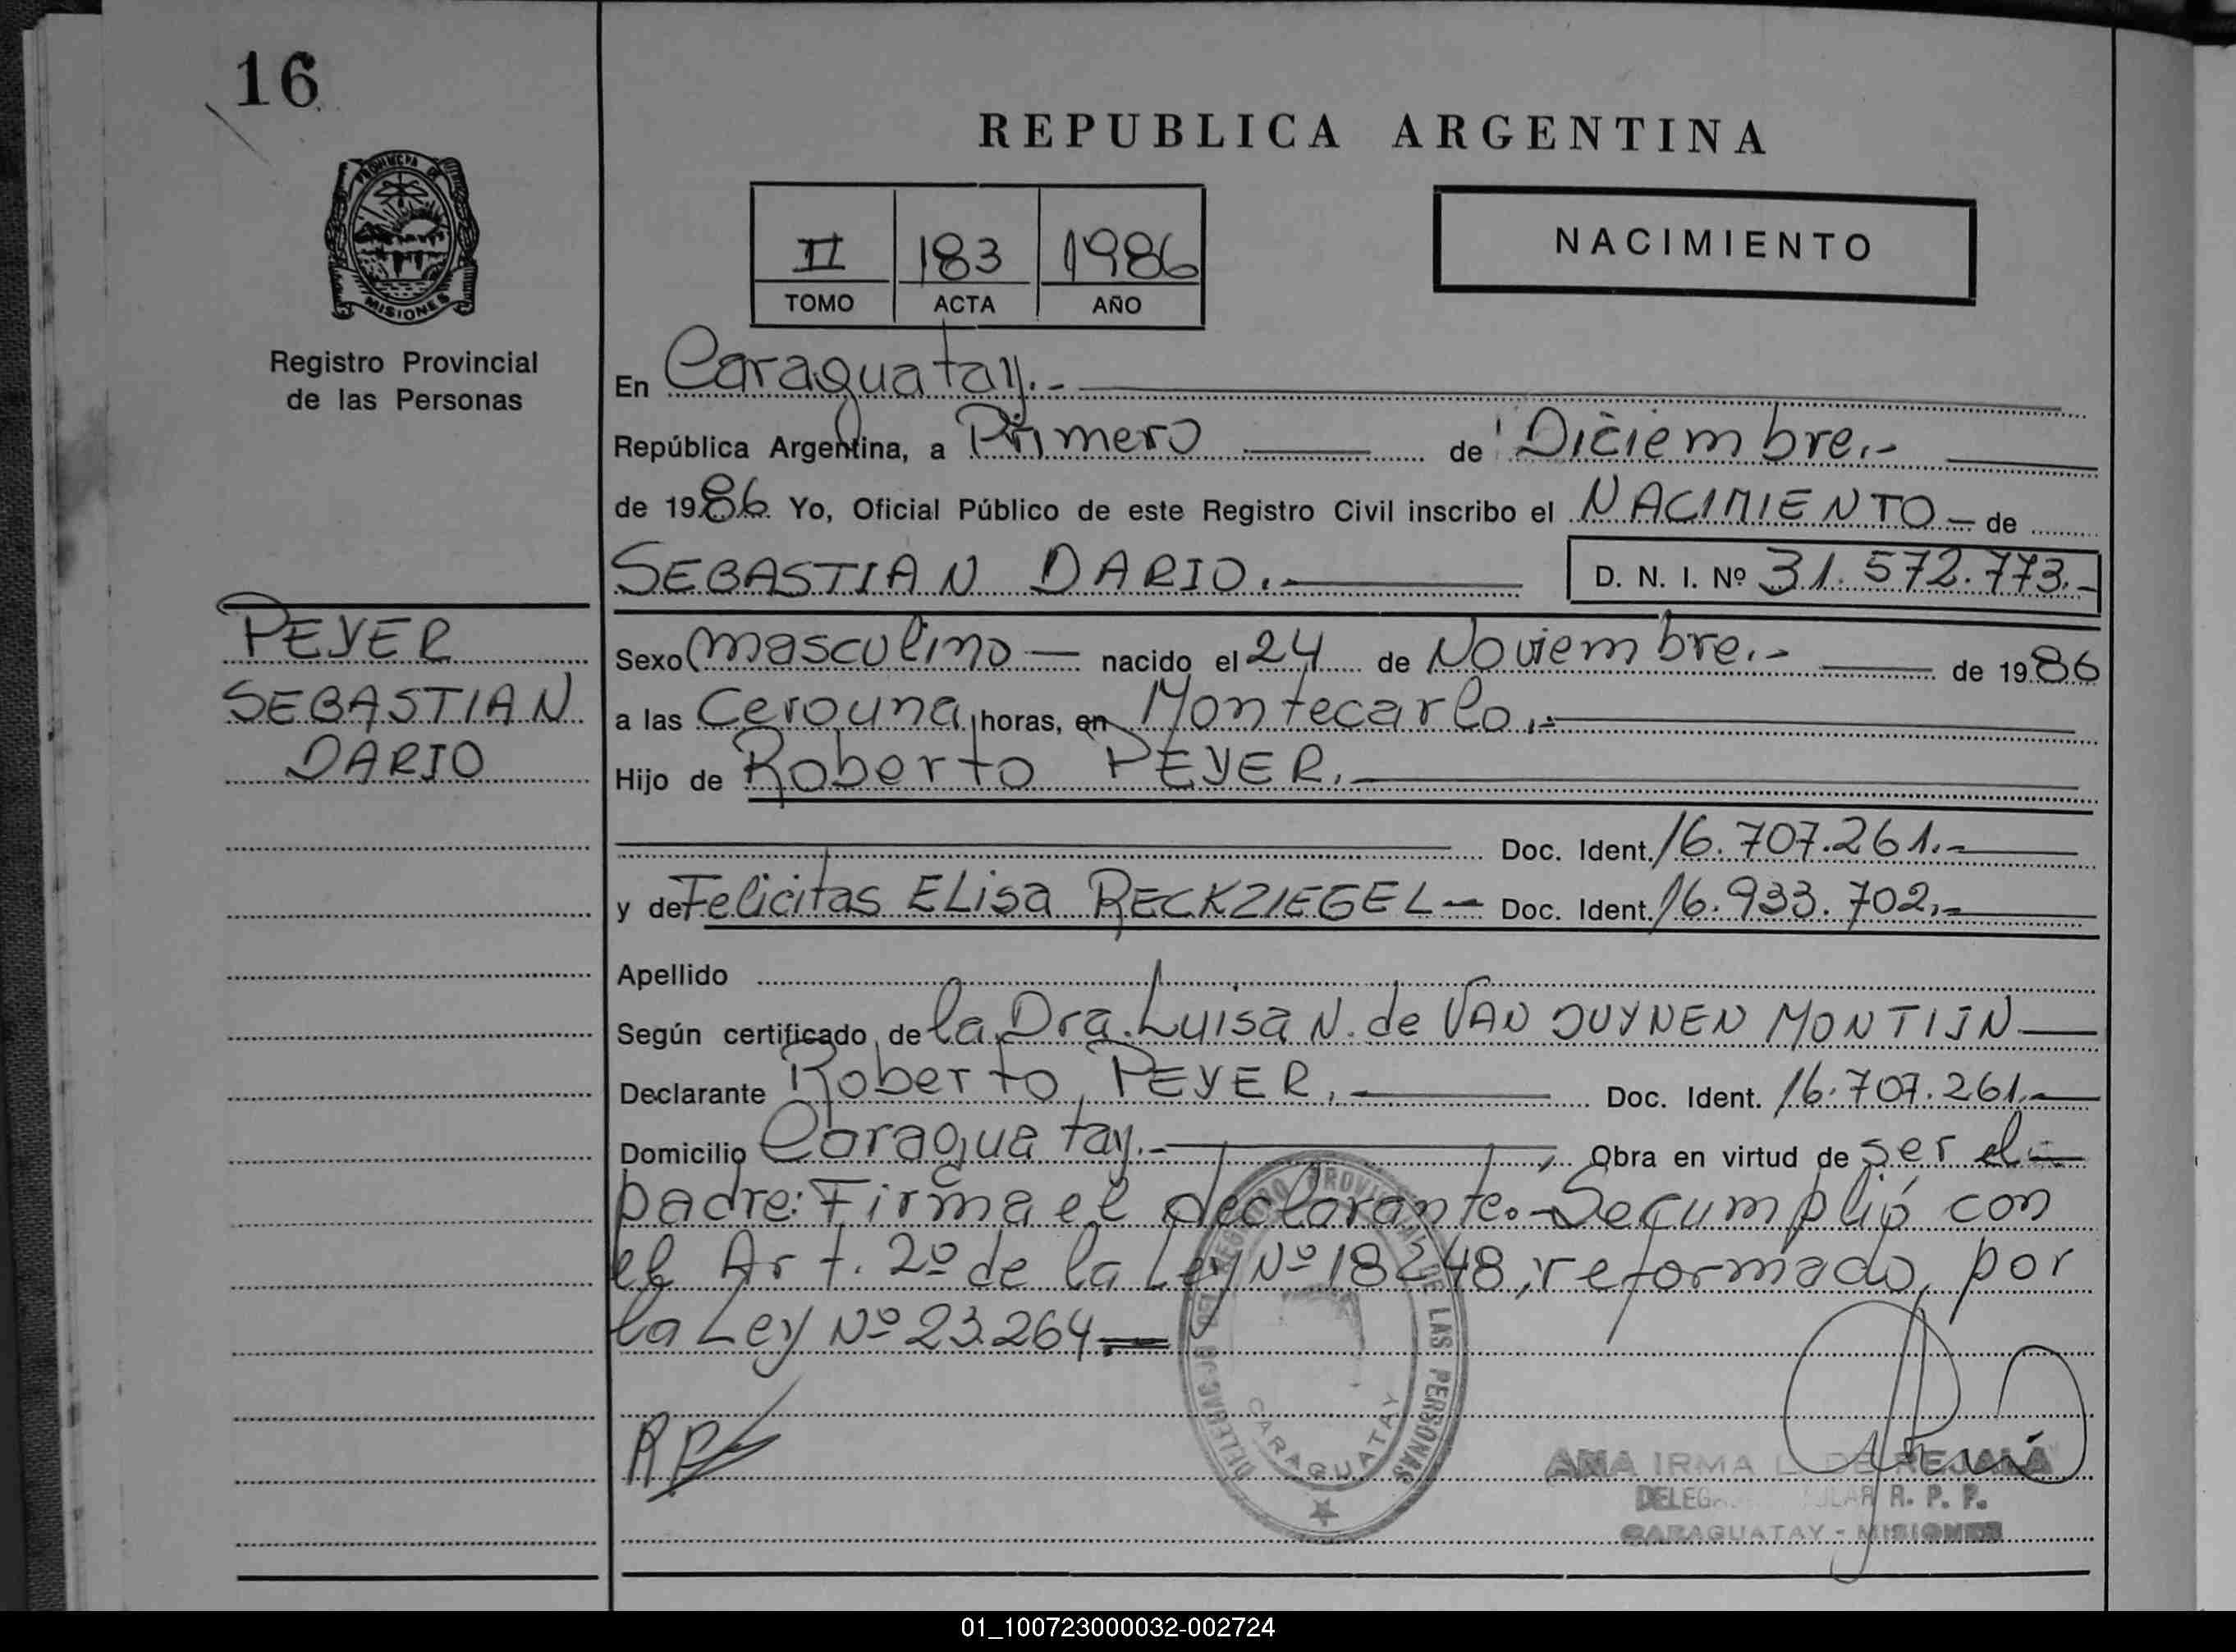 16
PROVINCIA DE
MISIONES
Registro Provincial
de las Personas
PEYER
SEBASTIAN
DARIO
REPUBLICA ARGENTINA
II 183 1986
TOMO ACTA AÑO
NACIMIENTO
En Caraguatay.-
República Argentina, a Primero de Diciembre.-
de 1986 Yo, Oficial Público de este Registro Civil inscribo el NACIMIENTO - de
SEBASTIAN DARIO.- D. N. I. Nº 31.572.773.-
Sexo masculino — nacido el 24 de Noviembre.- de 1986
a las Cerouna horas, en Montecarlo.-
Hijo de Roberto PEYER.
Doc. Ident. 16.707.261.-
y de Felicitas ELisa RECKZIEGEL — Doc. Ident. 16.933.702.-
Apellido
Según certificado de la Dra. Luisa N. de VAN DUYNEN MONTIJN
Declarante Roberto PEYER. Doc. Ident. 16.707.261.-
Domicilio Caraguatay.- Obra en virtud de ser el
padre: Firma el declarante.- Se cumplió con
el Art. 2º de la Ley Nº 18248, reformado, por
la Ley Nº 23.264.=
DEL REGISTRO PROVINCIAL DE LAS PERSONAS
CARAGUATAY
RP
ANA IRMA L. DE REJALA
R. P. P.
CARAGUATAY - MISIONES
01_100723000032-002724